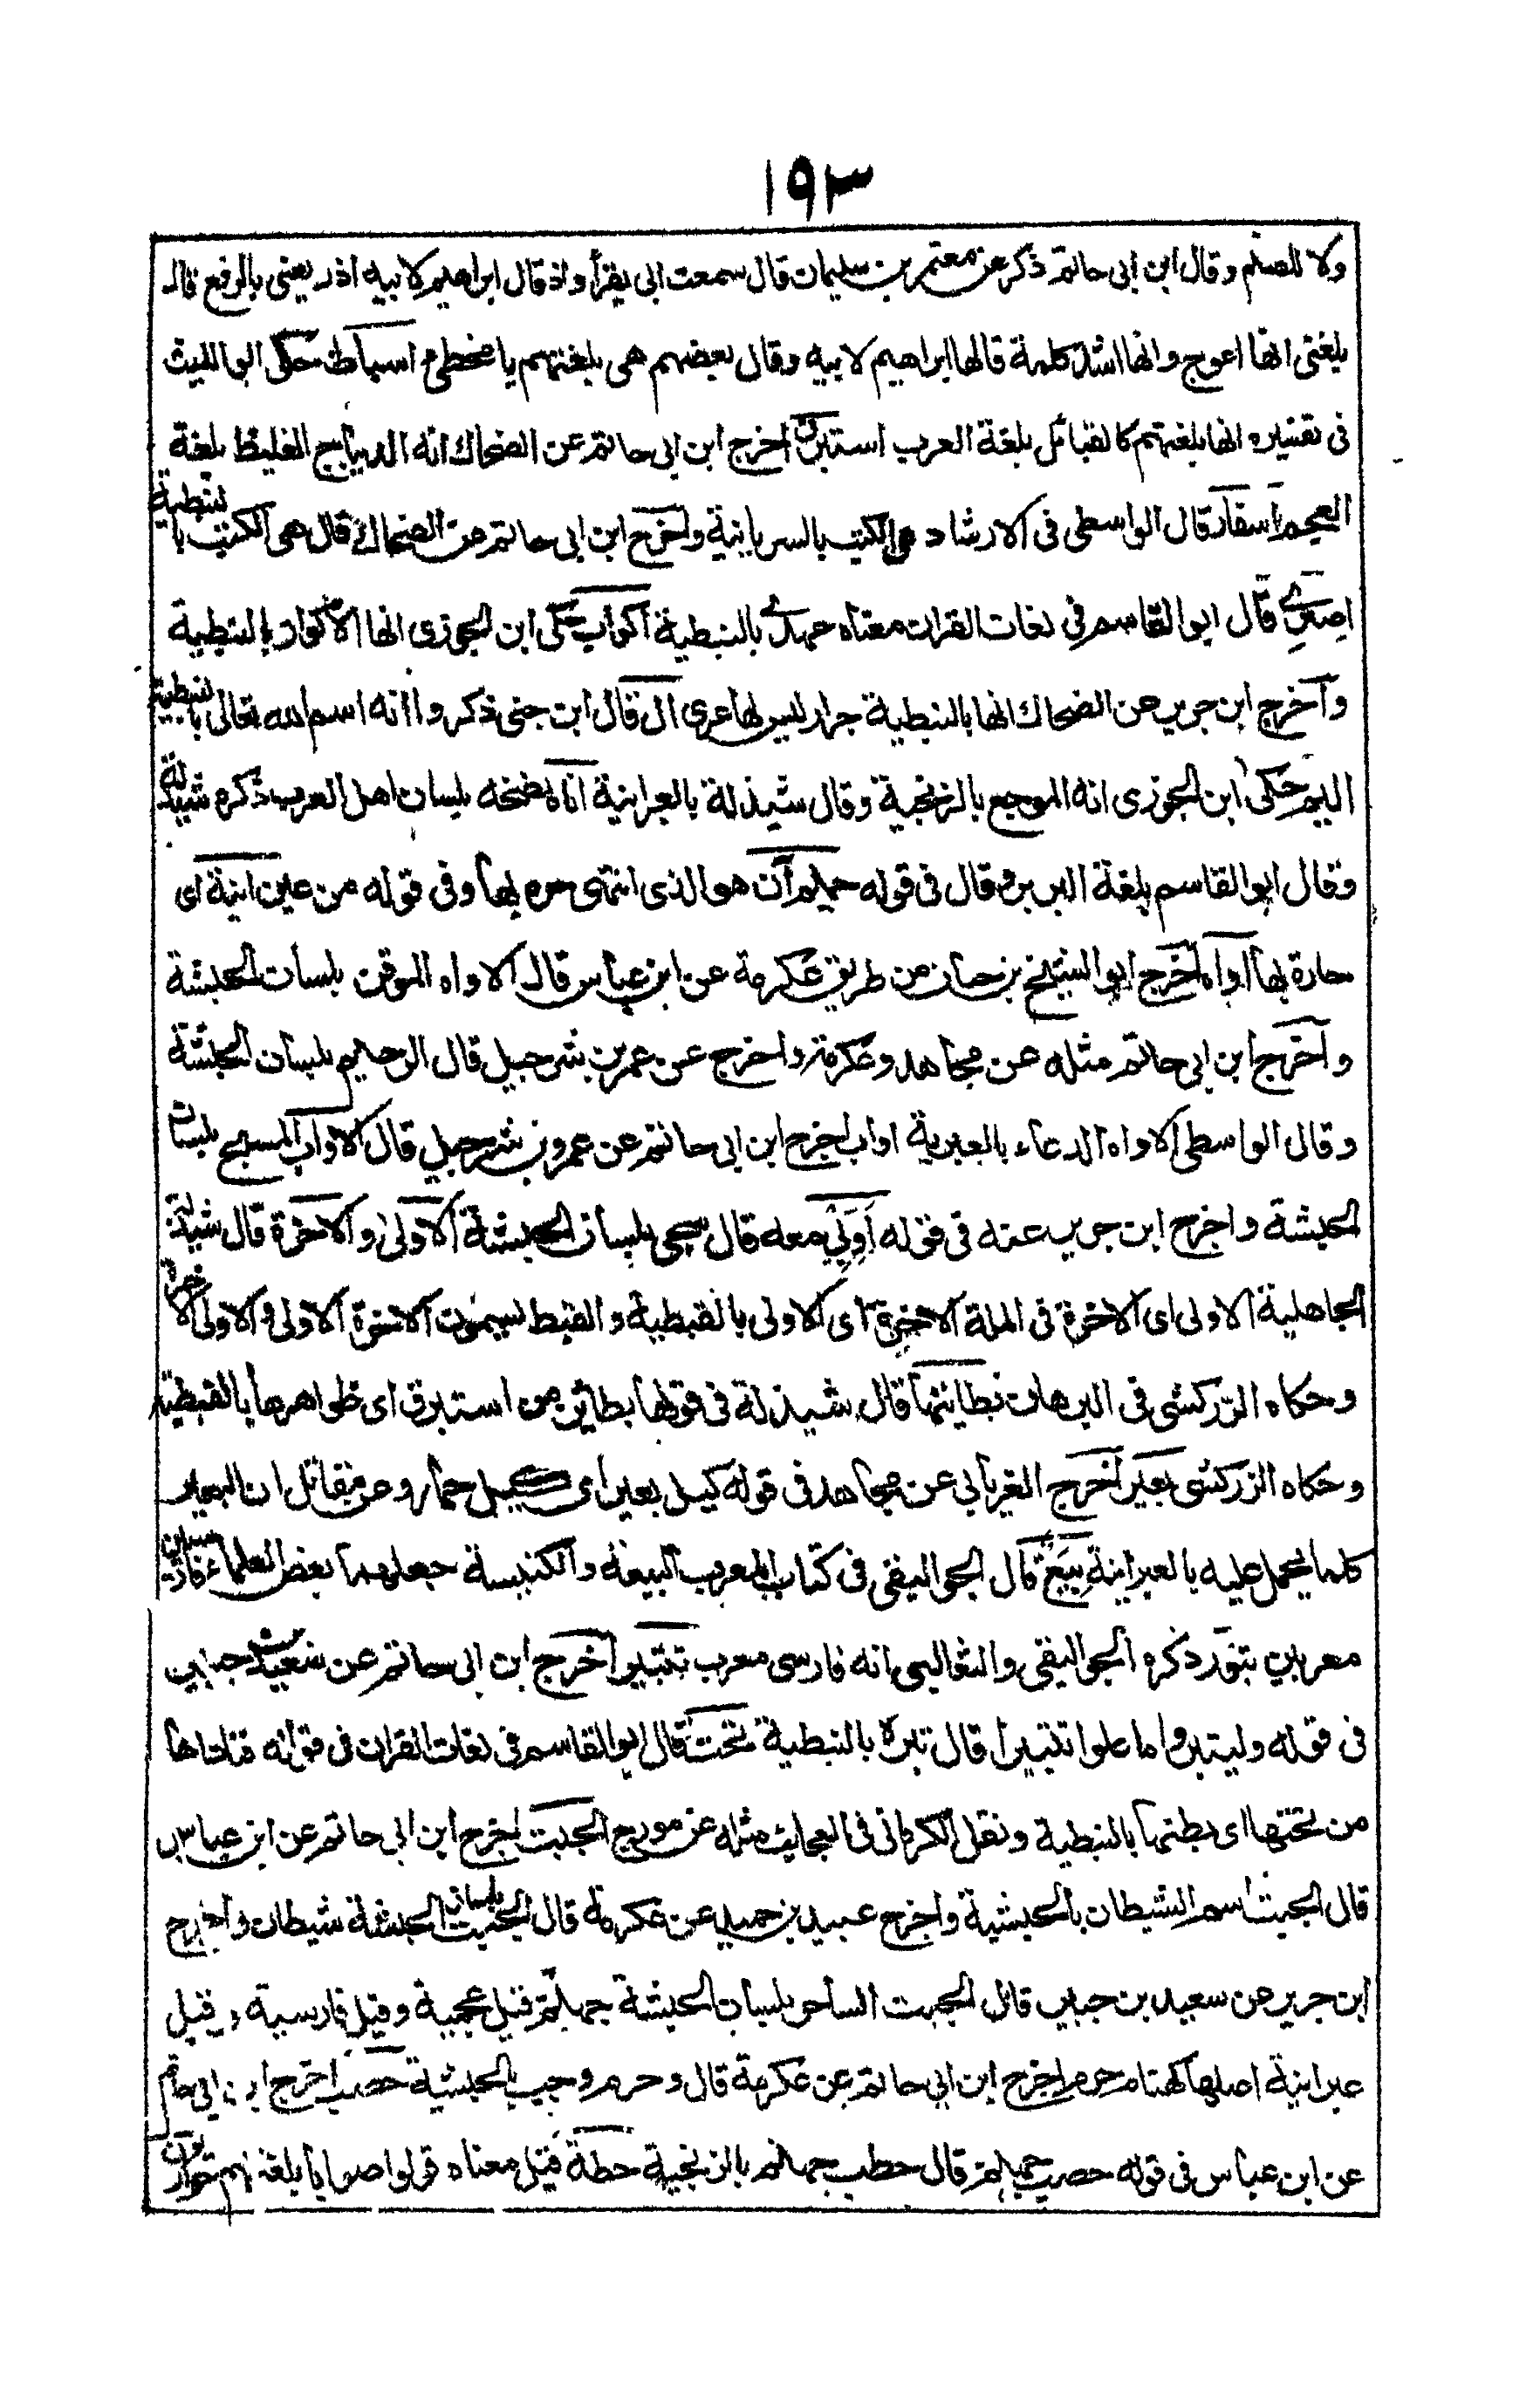 ١٩٣
ولا للصنم وقال ابن ابى حاتم ذكر عن معتمر بن سليمان قال سمعت ابى يقرأ واذ قال ابراهيم لابيه اذر يعنى بالرفع قال
بلغنى انها اعوج وانها اشد كلمة قالها ابراهيم لابيه وقال بعضهم هى بلغتهم يا مخطى اسباط حكى ابو الليث
فى تفسيره انها بلغتهم كالقبائل بلغة العرب استبرق اخرج ابن ابى حاتم عن الضحاك انه الديباج الغليظ بلغة
العجم اسفار قال الواسطى فى الارشاد هى الكتب بالسريانية واخرج ابن ابى حاتم عن الضحاك قال هى الكتب بالنبطية
اصرى قال ابو القاسم فى لغات القران معناه عهدى بالنبطية اكواب حكى ابن الجوزى انها الاكواز بالنبطية
واخرج ابن جرير عن الضحاك انها بالنبطية جرار ليس لها عرى ال قال ابن جنى ذكروا انه اسم الله تعالى بالنبطية
اليم حكى ابن الجوزى انه الموجع بالزنجية وقال شيذلة بالعبرانية اناه نضجه بلسان اهل العرب ذكره شيذلة
وقال ابو القاسم بلغة البربر وقال فى قوله حميم آن هو الذى انتهى حره بها وفى قوله من عين انية اى
حارة بها اواه اخرج ابو الشيخ بن حبان من طريق عكرمة عن ابن عباس قال الاواه الموقن بلسان الحبشة
واخرج ابن ابى حاتم مثله عن مجاهد وعكرمة واخرج عن عمر بن شرحبيل قال الرحيم بلسان الحبشة
وقال الواسطى الاواه الدعاء بالعبرية اواب اخرج ابن ابى حاتم عن عمرو بن شرحبيل قال الاواب المسبح بلسان
الحبشة واخرج ابن جرير عنه فى قوله اوبى معه قال سبحى بلسان الحبشة الاولى والاخرة قال شيذلة
الجاهلية الاولى اى الاخرة فى الملة الاخرة اى الاولى بالقبطية والقبط يسمون الاخرة الاولى والاولى الاخرة
وحكاه الزركشى فى البرهان بطائنها قال شيذلة فى قوله بطائن من استبرق اى ظواهرها بالقبطية
وحكاه الزركشى بعير اخرج الفريابى عن مجاهد فى قوله كيل بعير اى كيل حمار وعن مقاتل ان البعير
كلما يحمل عليه بالعبرانية بيع قال الجواليقى فى كتاب المعرب البيعة والكنيسة جعلهما بعض العلماء فارسيين
معربين تنور ذكره الجواليقى والثعالبى انه فارسى معرب تتبيرا اخرج ابن ابى حاتم عن سعيد بن جبير
فى قوله وليتبروا ما علوا تتبيرا قال تبره بالنبطية تحت قال ابو القاسم فى لغات القران فى قوله فناداها
من تحتها اى بطنها بالنبطية ونقل الكرمانى فى العجائب مثله عن مورج الجبت اخرج ابن ابى حاتم عن ابن عباس
قال الجبت اسم الشيطان بالحبشية واخرج عبيد بن حميد عن عكرمة قال الجبت بلسان الحبشة شيطان واخرج
ابن جرير عن سعيد بن جبير قال الجبت الساحر بلسان الحبشة جهنم قيل عجمية وقيل فارسية وقيل
عبرانية اصلها كهنام حرم اخرج ابن ابى حاتم عن عكرمة قال وحرم وجب بالحبشية حصب اخرج ابن ابى حاتم
عن ابن عباس فى قوله حصب جهنم قال حطب جهنم بالزنجية حطة قيل معناه قولوا صوابا بلغتهم حواريون